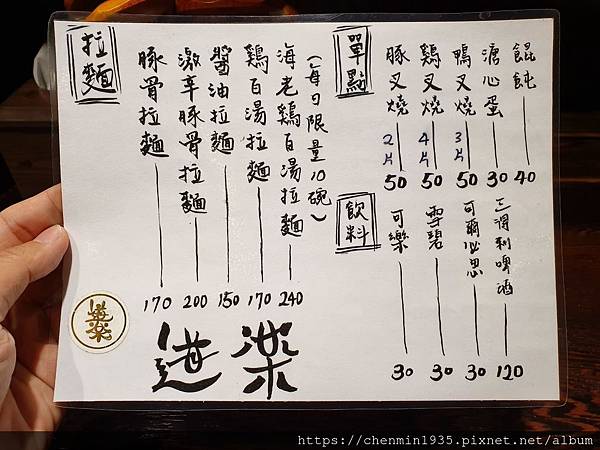 拉麵
豚骨拉麵 170
激辛豚骨拉麵 200
醬油拉麵 150
鷄百湯拉麵 170
海老鷄百湯拉麵 240
(每日限量10碗)
單點
豚叉燒 2片 50
鷄叉燒 4片 50
鴨叉燒 3片 50
溏心蛋 30
餛飩 40
飲料
可樂 30
雪碧 30
可爾必思 30
三得利啤酒 120
道樂
道樂
https://chenmin1935.pixnet.net/album